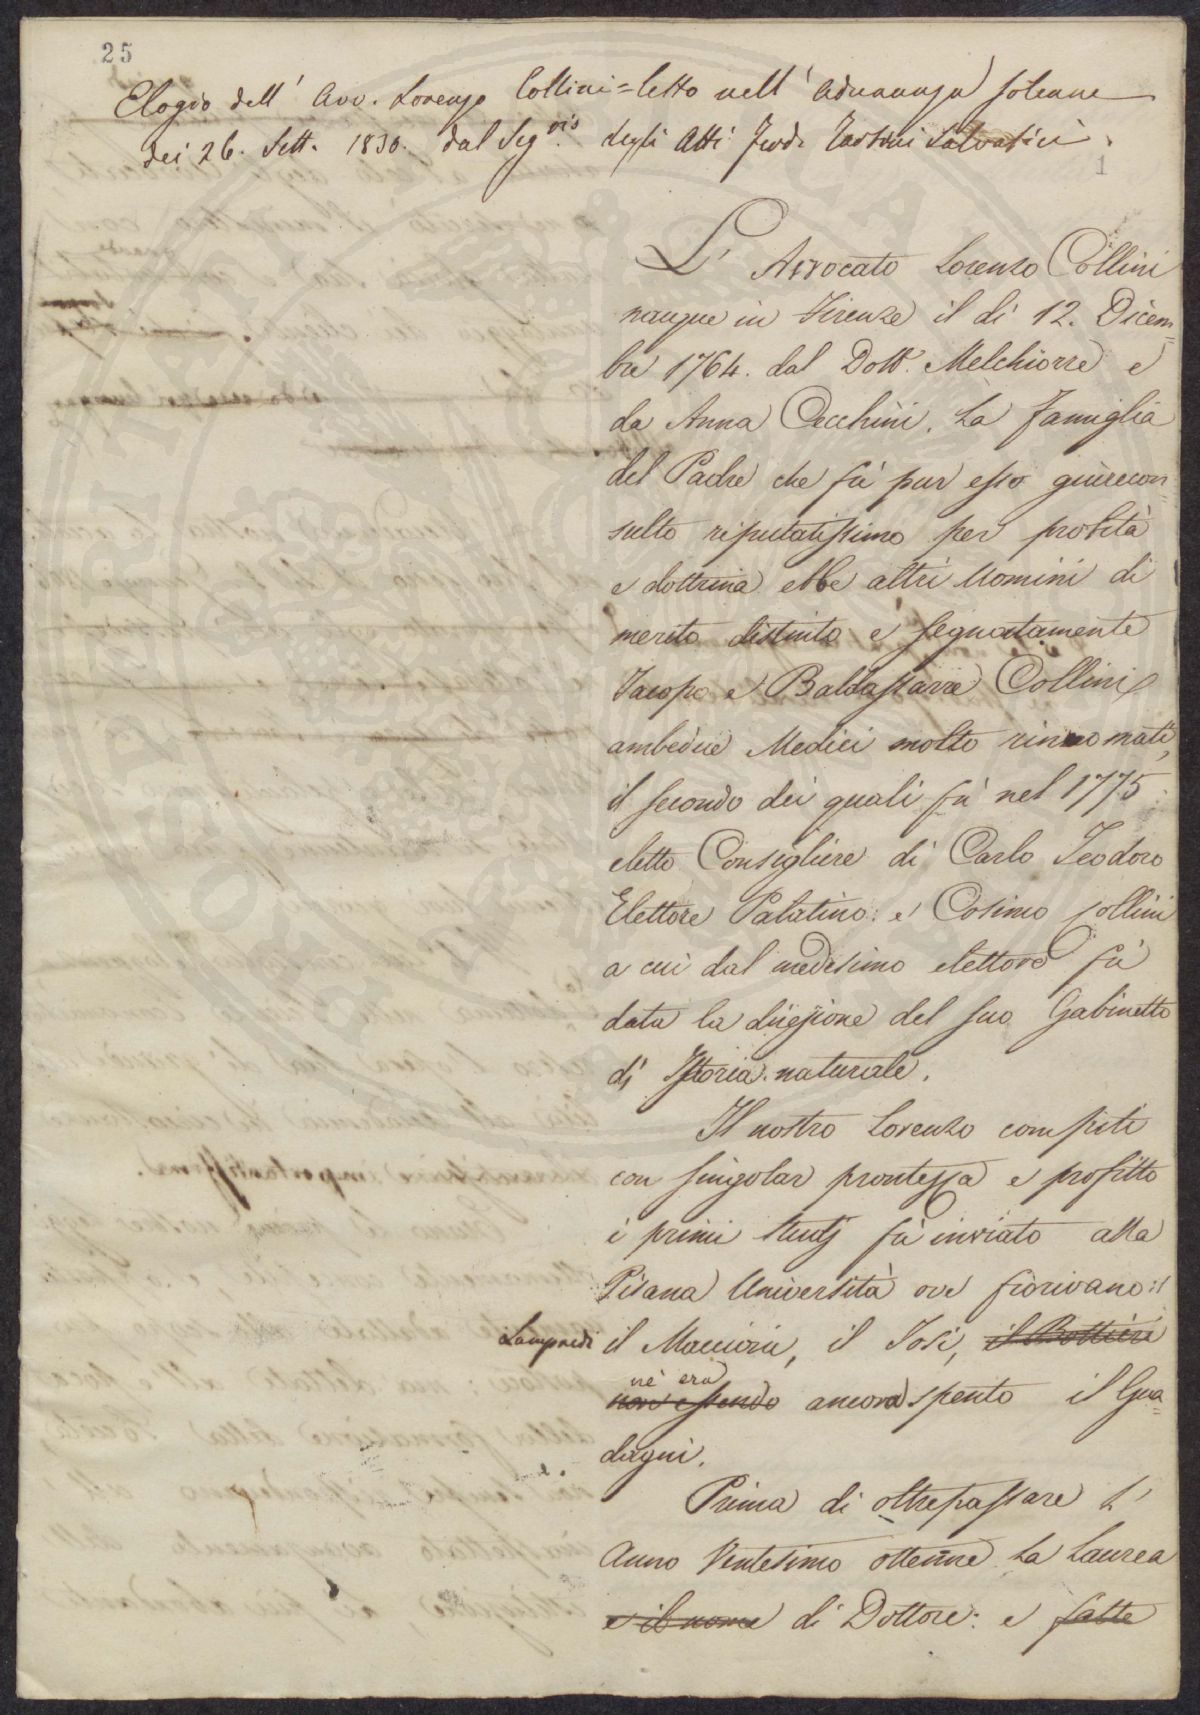 25
Elogio dell' Avv. Lorenzo Collini = letto nell' Adunanza solenne
dei 26. Sett. 1830. dal Seg.rio degli Atti Ferd. Tartini Salvatici.
1
L' Avvocato Lorenzo Collini
nacque in Firenze il dì 12. Dicem=
bre 1764. dal Dott. Melchiorre e
da Anna Cecchini. La famiglia
del Padre che fù pur esso giurecon=
sulto riputatissimo per probità
e dottrina ebbe altri Uomini di
merito distinto e segnatamente
Jacopo e Baldassarre Collini
ambedue Medici molto rinnomati,
il secondo dei quali fù nel 1775
eletto Consigliere di Carlo Teodoro
Elettore Palatino: e Cosimo Collini
a cui dal medesimo elettore fù
data la direzione del suo Gabinetto
di Istoria naturale.
Il nostro Lorenzo compiti
con singolar prontezza e profitto
i primi studj fù inviato alla
Pisana Università ove fiorivano il
Lampredi il Maccioni, il Tosi, il Bottieri
nè era
non essendo ancora spento il Gua=
dagni.
Prima di oltrepassare l'
Anno Ventesimo ottenne la Laurea
e il nome di Dottore: e fatte